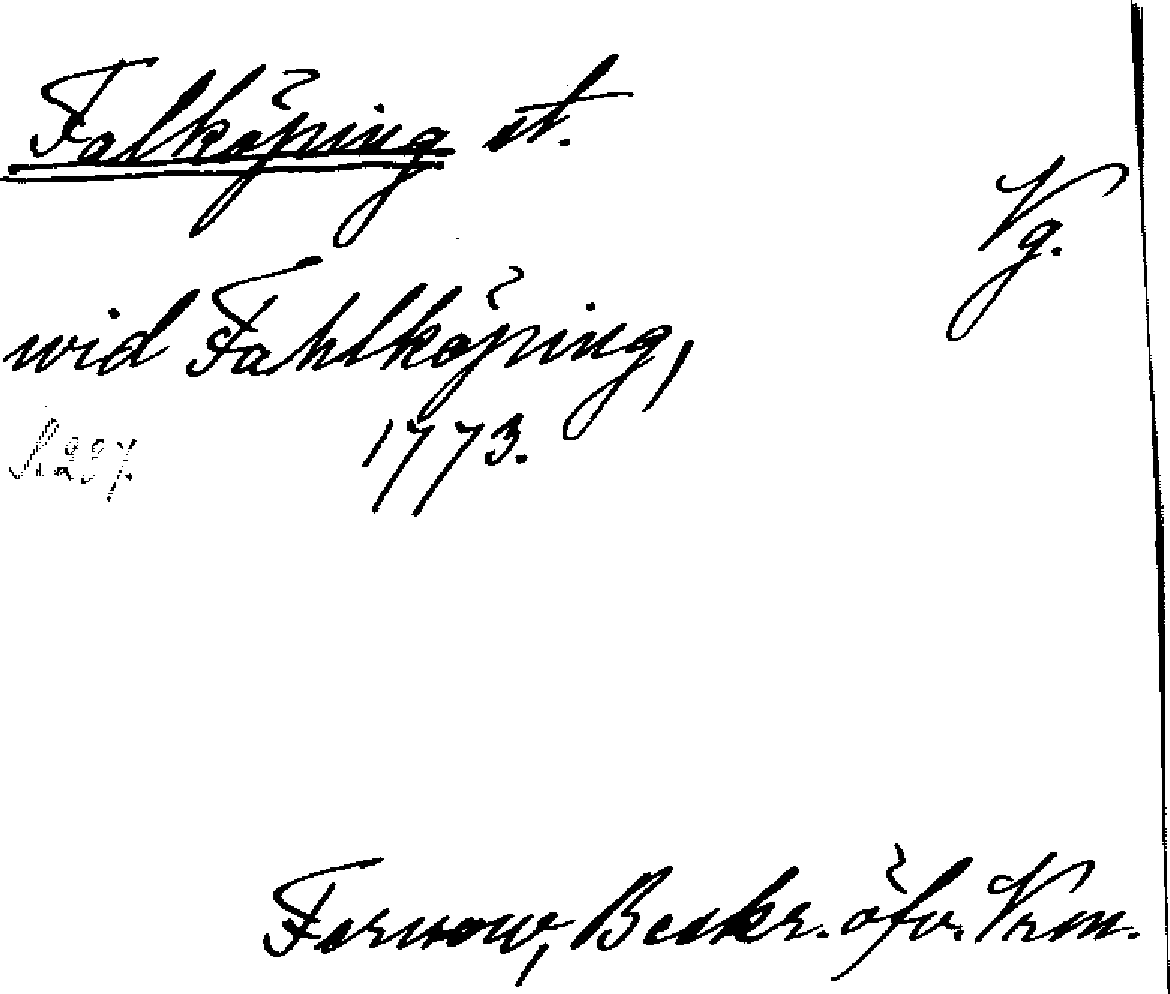 Falköping st.
Vg.
wid Fahlköping,
1773.
Fernow, Beskr. öfv. Vrm.